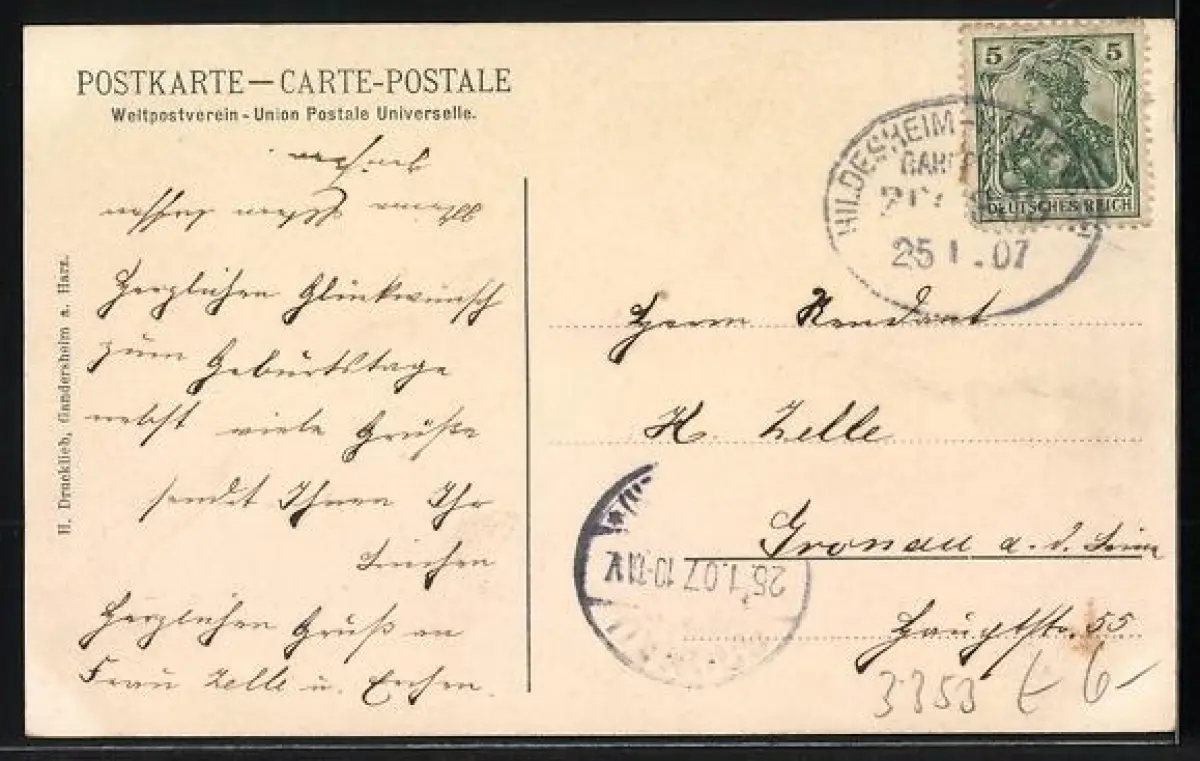 POSTKARTE — CARTE-POSTALE
Weltpostverein - Union Postale Universelle.
Herzlichen Glückwunsch
zum Geburtstage
nebst viele Grüße
sendet Ihnen Ihr
Linchen
Herzlichen Gruß an
Frau Zelle u.
H. Drucklieb, Gandersheim a. Harz.
5 5
DEUTSCHES REICH
HILDESHEIM-
25 1.07
Herrn Rendant
H. Zelle
Gronau a. d. Leine
Hauptstr. 55
25.1.07.10-11V
3353 6-